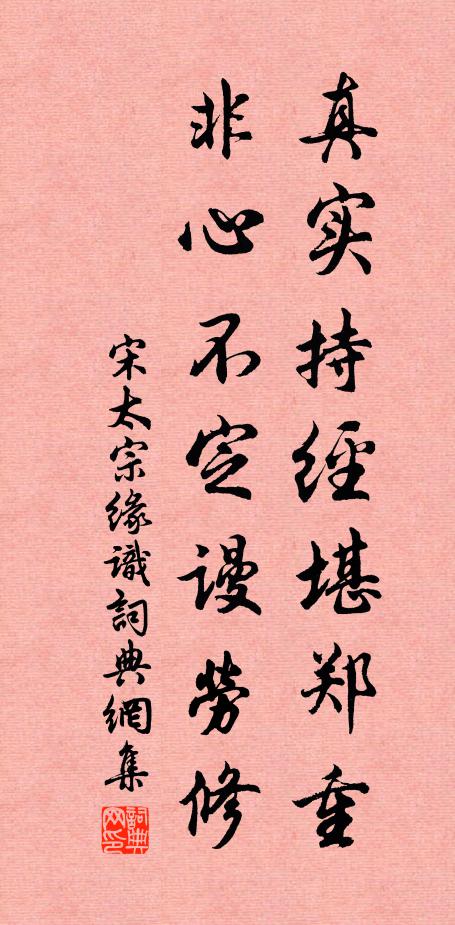 真实持經堪郑重
非心不定謾勞修
宋太宗缘識詞典網集
詞典網印